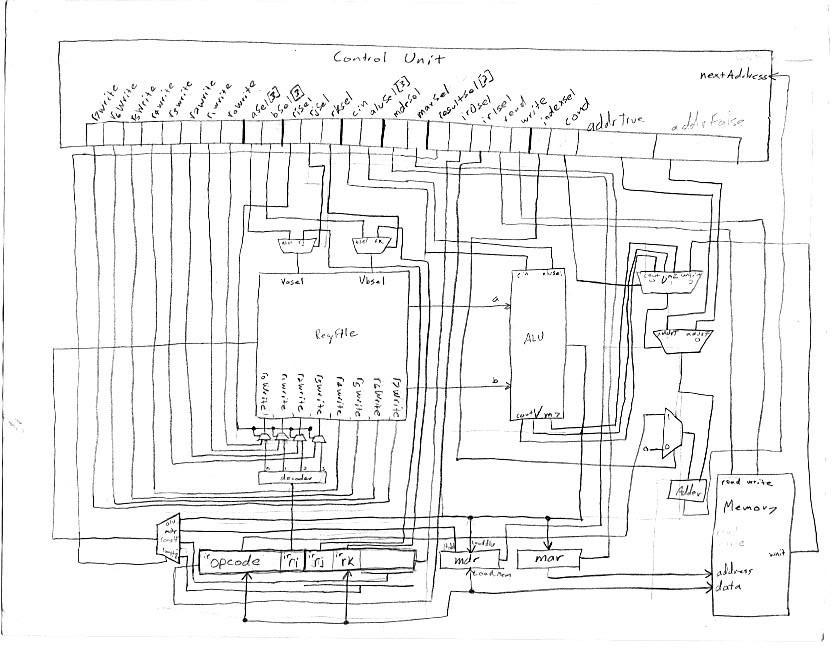 Control Unit
nextAddress
r7write
r6write
r5write
r4write
r3write
r2write
r1write
r0write
asel[3]
bsel[3]
risel
rjsel
rksel
cin
alusel[3]
mdrsel
marsel
resultsel[2]
ir0sel
ir1sel
read
write
indexsel
cond
addrTrue
addrFalse
asel rj
bsel rk
Vasel
Vbsel
RegFile
r0write
r1write
r2write
r3write
r4write
r5write
r6write
r7write
decoder
0 1 2 3
cin alusel
a
ALU
b
cout V n z
addrT addrF
0
Adder
read write
Memory
wait
address
data
alu
mdr
const4
ir opcode
ir ri
ir rj
ir rk
mdr
loadMem
mar